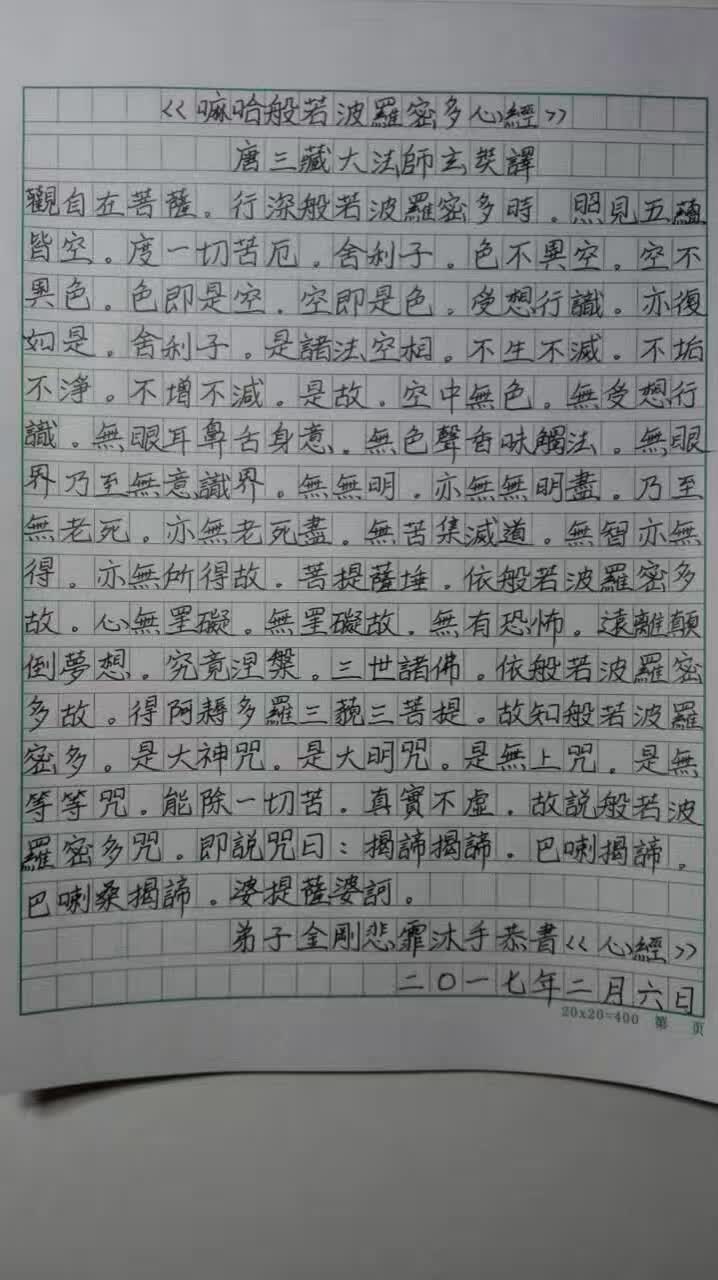 《嘛哈般若波羅密多心經》
唐三藏大法師玄奘譯
觀自在菩薩。行深般若波羅密多時。照見五蘊
皆空。度一切苦厄。舍利子。色不異空。空不
異色。色即是空。空即是色。受想行識。亦復
如是。舍利子。是諸法空相。不生不滅。不垢
不淨。不增不減。是故。空中無色。無受想行
識。無眼耳鼻舌身意。無色聲香味觸法。無眼
界乃至無意識界。無無明。亦無無明盡。乃至
無老死。亦無老死盡。無苦集滅道。無智亦無
得。亦無所得故。菩提薩埵。依般若波羅密多
故。心無罣礙。無罣礙故。無有恐怖。遠離顛
倒夢想。究竟涅槃。三世諸佛。依般若波羅密
多故。得阿耨多羅三藐三菩提。故知般若波羅
密多。是大神咒。是大明咒。是無上咒。是無
等等咒。能除一切苦。真實不虛。故説般若波
羅密多咒。即説咒曰：揭諦揭諦。巴喇揭諦。
巴喇桑揭諦。婆提薩婆訶。
弟子金剛悲霏沐手恭書《心經》
二〇一七年二月六日
20x20=400 第 页